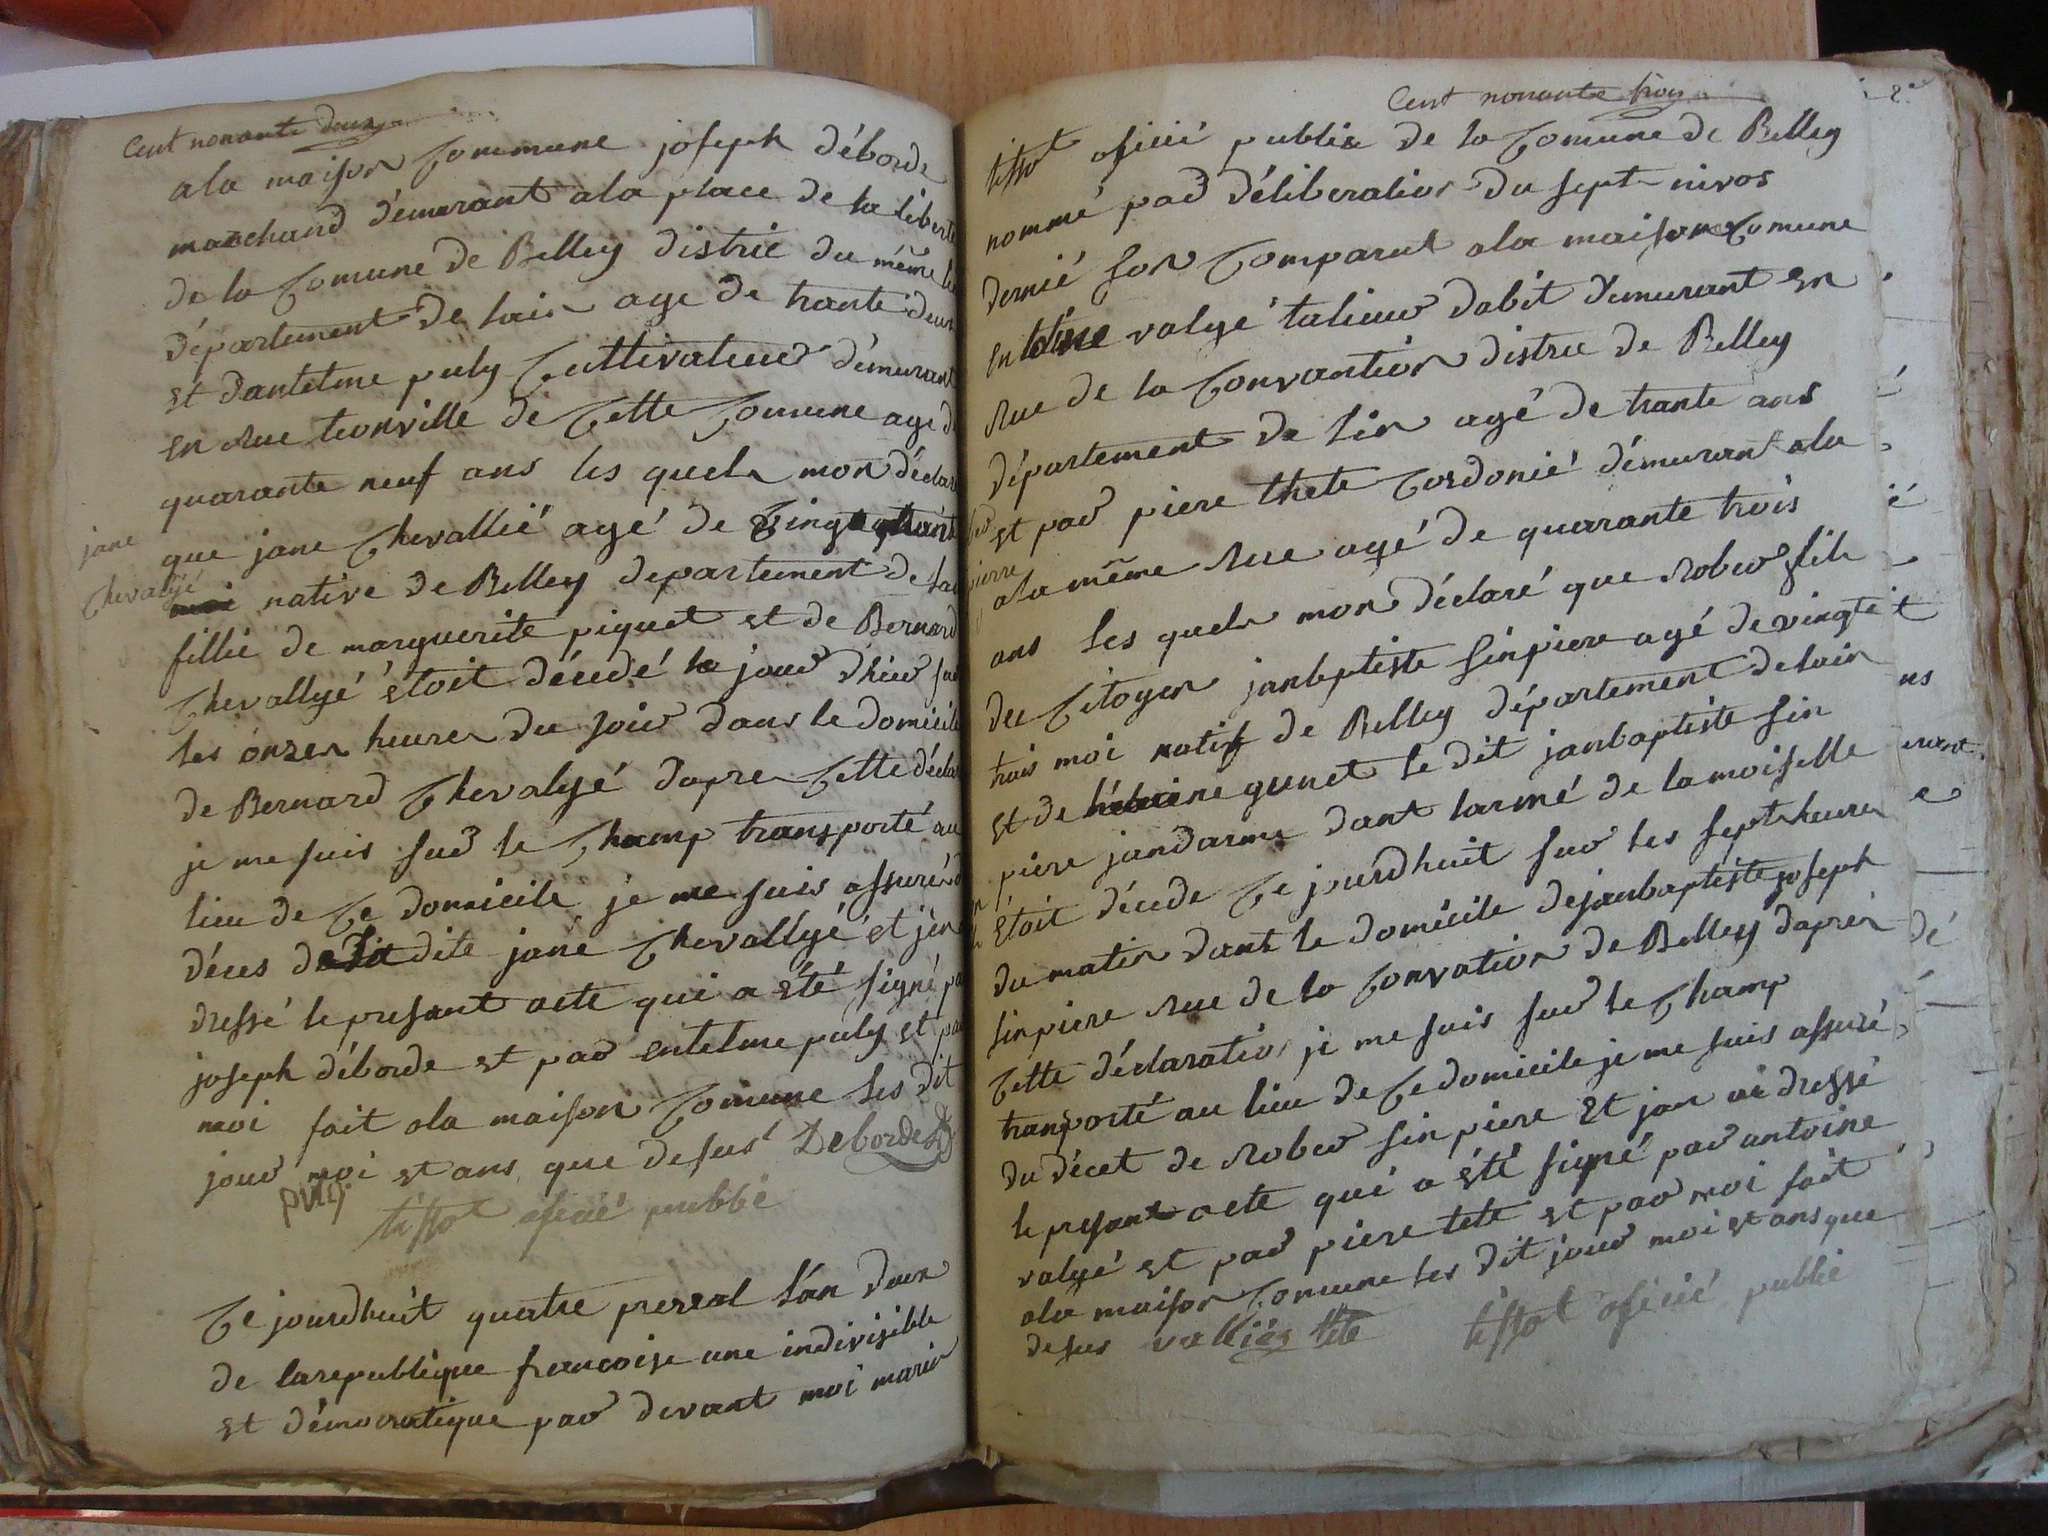 Cent nonante deux
a la maison Commune joseph déborde
marchand démurant a la place de la liberté
de la Comune de Belley distric du même lieu
département de lain age de trante deux
et dantelme puly Cultivateur démurant
en Rue tionville de Cette Comune age de
quarante neuf ans les quels mon déclaré
que jane Chevallié agé de
jane
Chevalyé
native de Belley departement de lain
fillie de marguerite piquet et de Bernard
Chevallyé étoit décédé le jour dhier sur
les onzes heures du soir dans le domicile
de Bernard Chevalyé dapres Cette déclaration
je me suis sur le Champ transporté au
lieu de Ce domicile je me suis assuré du
déces de la dite jane Chevallyé et jén ai
dressé le presant acte qui a été signé par
joseph déborde et par entelme puly et par
moi fait a la maison Comune les dit
jour moi et ans que desus Debordes
puly
tissot oficié public
Ce jourdhuit quatre prereal lan deux
de la republique francoise une indivisible
et démocratique par devant moi marin
Cent nonante trois
tissot oficié public de la Comune de Belley
nommé par déliberation du sept nivos
dernié son Comparut a la maison Comune
entoine valyé talieur dabit démurant en
Rue de la Convantion distric de Belley
département de lin agé de trante ans
et par piere thete Cordonié démurant a la
a la même Rue agé de quarante trois
ans les quels mon déclaré que Rober fils
du Citoyen janbptiste sinpiere agé de vingte
trois moi natif de Belley département de lain
et de gunet le dit janbaptiste sin
piere jandarme dant larmé de la moiselle
étoit décede Ce jourdhuit sur les sept heures
du matin dant le domicile de janbaptiste joseph
sinpiere Rue de la Convation de Belley daprés
Cette déclaration je me suis sur le Champ
transporté au lieu de Ce domicile je me suis assuré
du décet de Rober sinpiere et jan ai dressé
le presant acte qui a été signé par antoine
valyé et par piere tete et par moi fait
a la maison Comune les dit jour moi et ans que
desus valliés tete tissot oficié public